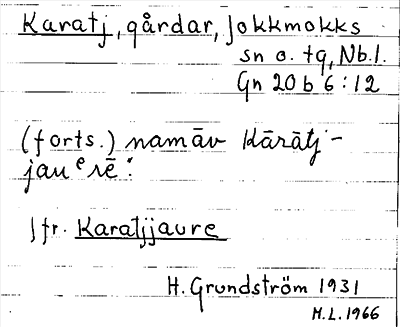 Karatj, gårdar, Jokkmokks
sn o. tg, Nb.l.
Gn 20 b 6:12
(forts.) namāv Kārātj-
jauᵉrē :
Jfr. Karatjjaure
H. Grundström 1931
H.L. 1966